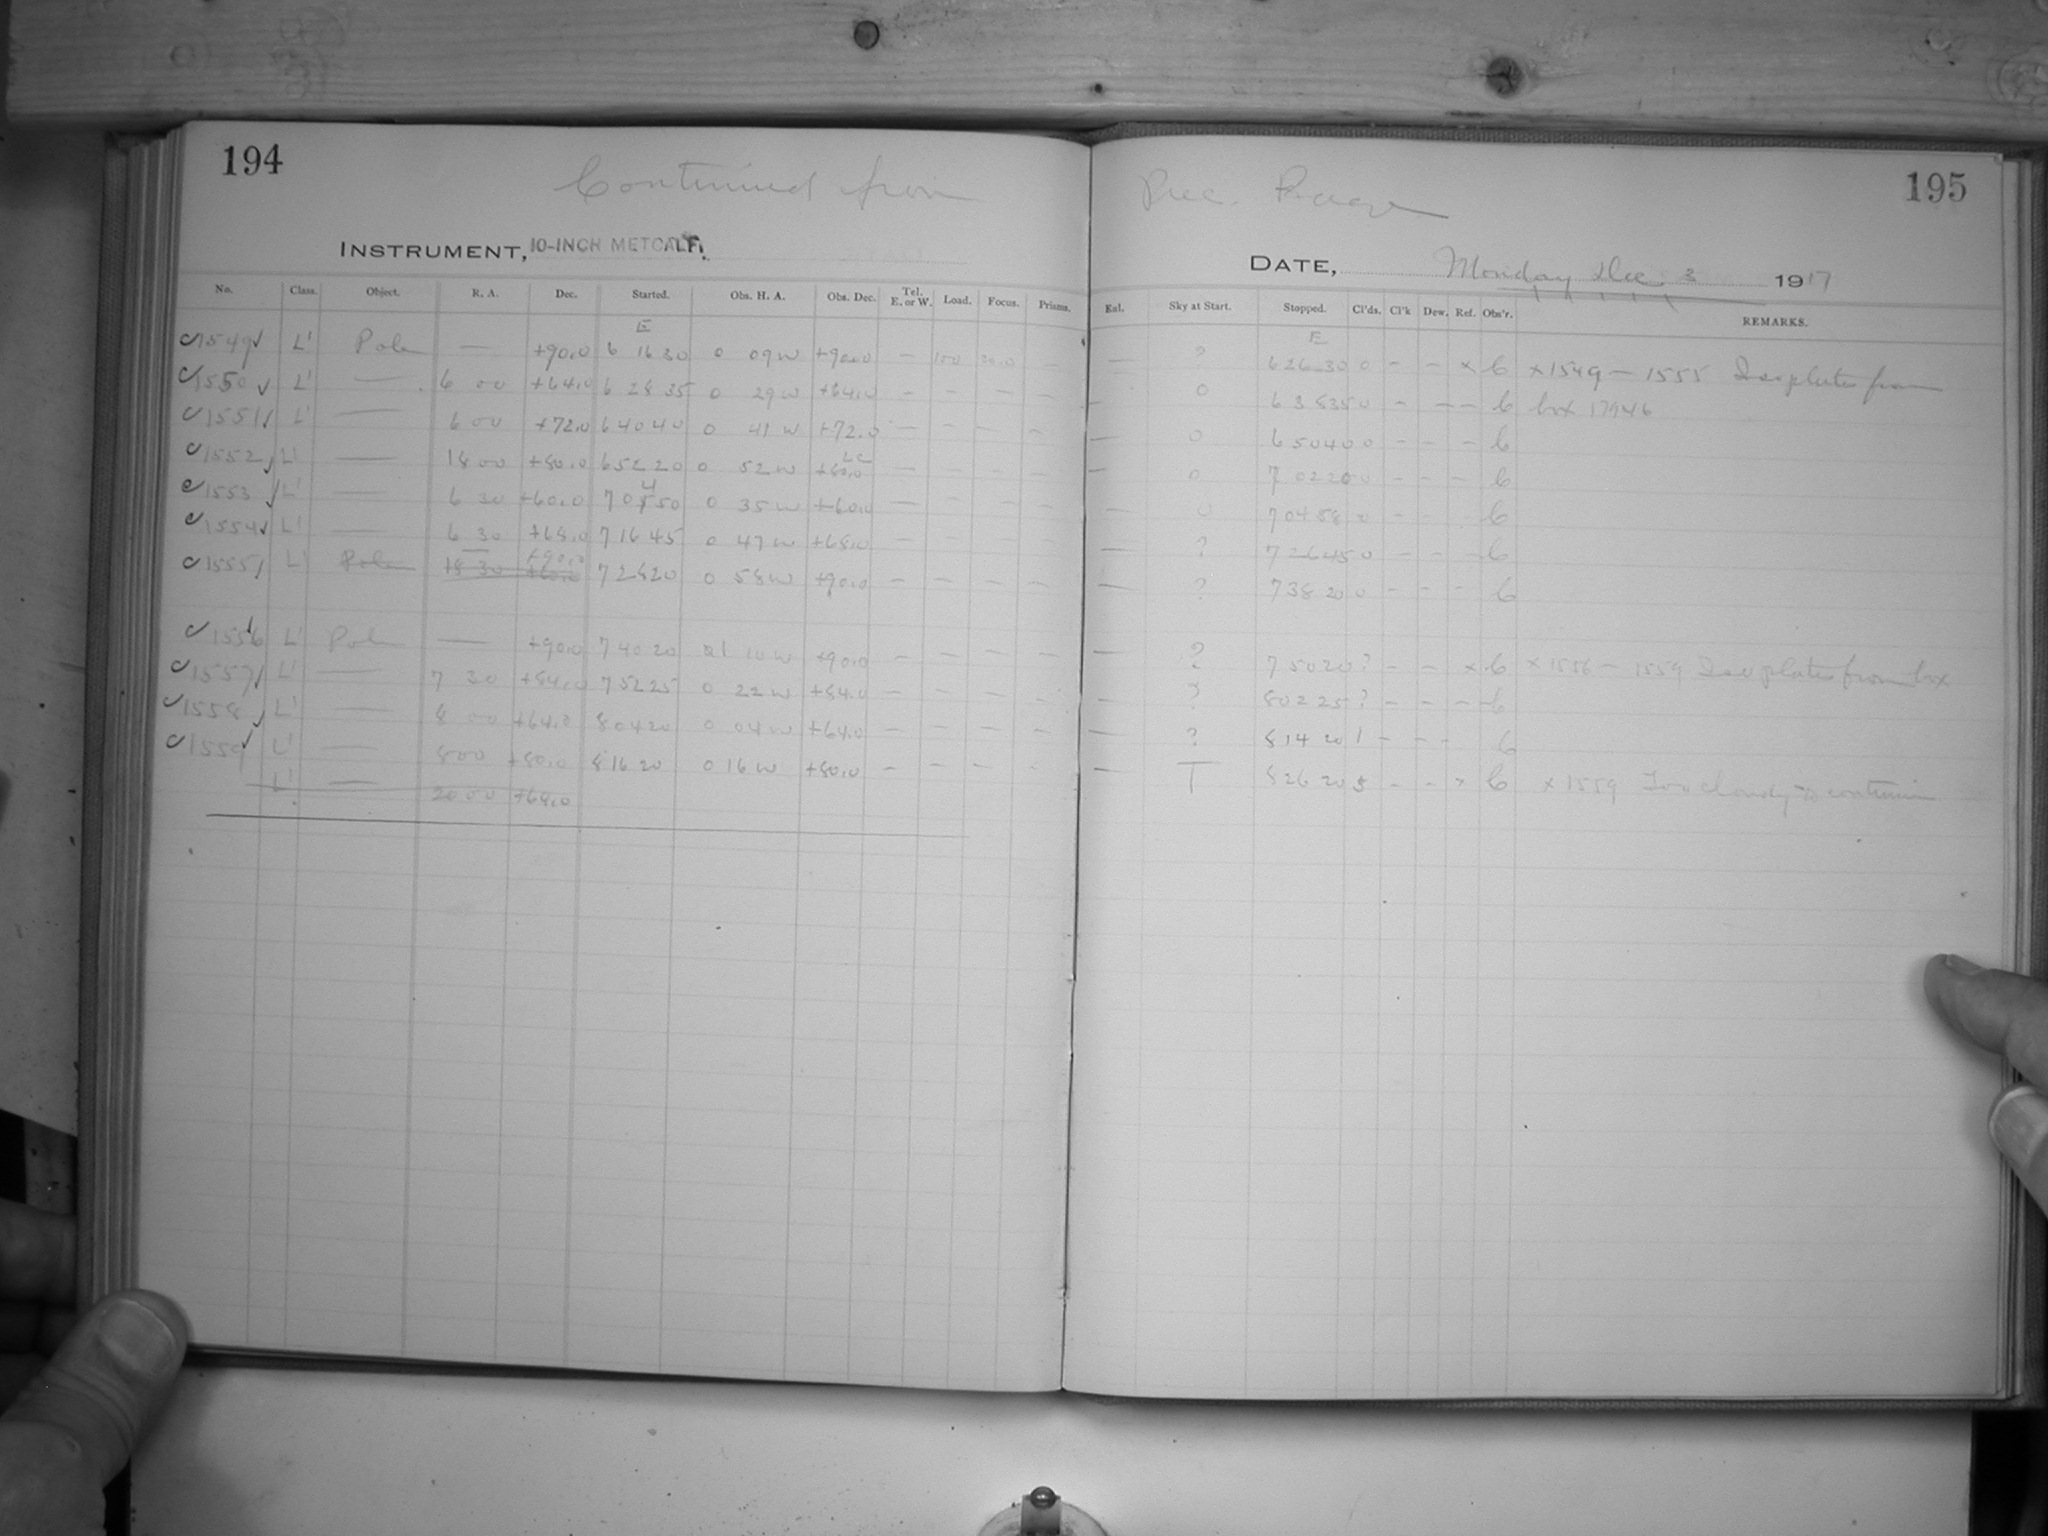 194
Continued from Prec. Page
195
INSTRUMENT, 10-INCH METCALF.
DATE, Monday Dec. 3 1917
No. Class. Object. R. A. Dec. Started. Obs. H. A. Obs. Dec. Tel. E. or W. Load. Focus. Prisms. Eal. Sky at Start. Stopped. Cl'ds. Cl'k Dew. Ref. Obs'r. REMARKS.
E E
1549 L' Pole — +90.0 6 16 30 0 09 W +90.0 — 100 30.0 — — ? 6 26 30 0 — — x C x 1549 — 1555 Iso plates from
1550 L' — 6 00 +64.0 6 28 35 0 29 W +64.0 — — — — — 0 6 38 35 0 — — — C box 17946
1551 L' — 6 00 +72.0 6 40 40 0 41 W +72.0 — — — — — 0 6 50 40 0 — — — C
1552 L' — 18 00 +80.0 6 52 20 0 52 W +80.0 LC — — — — — 0 7 02 20 0 — — — C
1553 L' — 6 30 +60.0 7 04 50 0 35 W +60.0 — — — — — 0 0 — — — C
1554 L' — 6 30 +68.0 7 16 45 0 47 W +68.0 — — — — — ? 7 26 45 0 — — — C
1555 L' Pole — +90.0 7 28 20 0 58 W +90.0 — — — — — ? 7 38 20 0 — — — C
1556 L' Pole — +90.0 7 40 20 1 10 W +90.0 — — — — — ? 7 50 20 ? — — x C x 1556 — 1559 Iso plates from box
1557 L' — 7 30 +84.0 7 52 25 0 22 W +84.0 — — — — — ? 8 02 25 ? — — — C
1558 L' — 8 00 +64.0 8 04 20 0 04 W +64.0 — — — — — ? 8 14 20 1 — — — C
1559 L' — 8 00 +80.0 8 16 20 0 16 W +80.0 — — — — — T 8 26 20 5 — — x C x 1559 Too cloudy to continue
L' — 20 00 +68.0